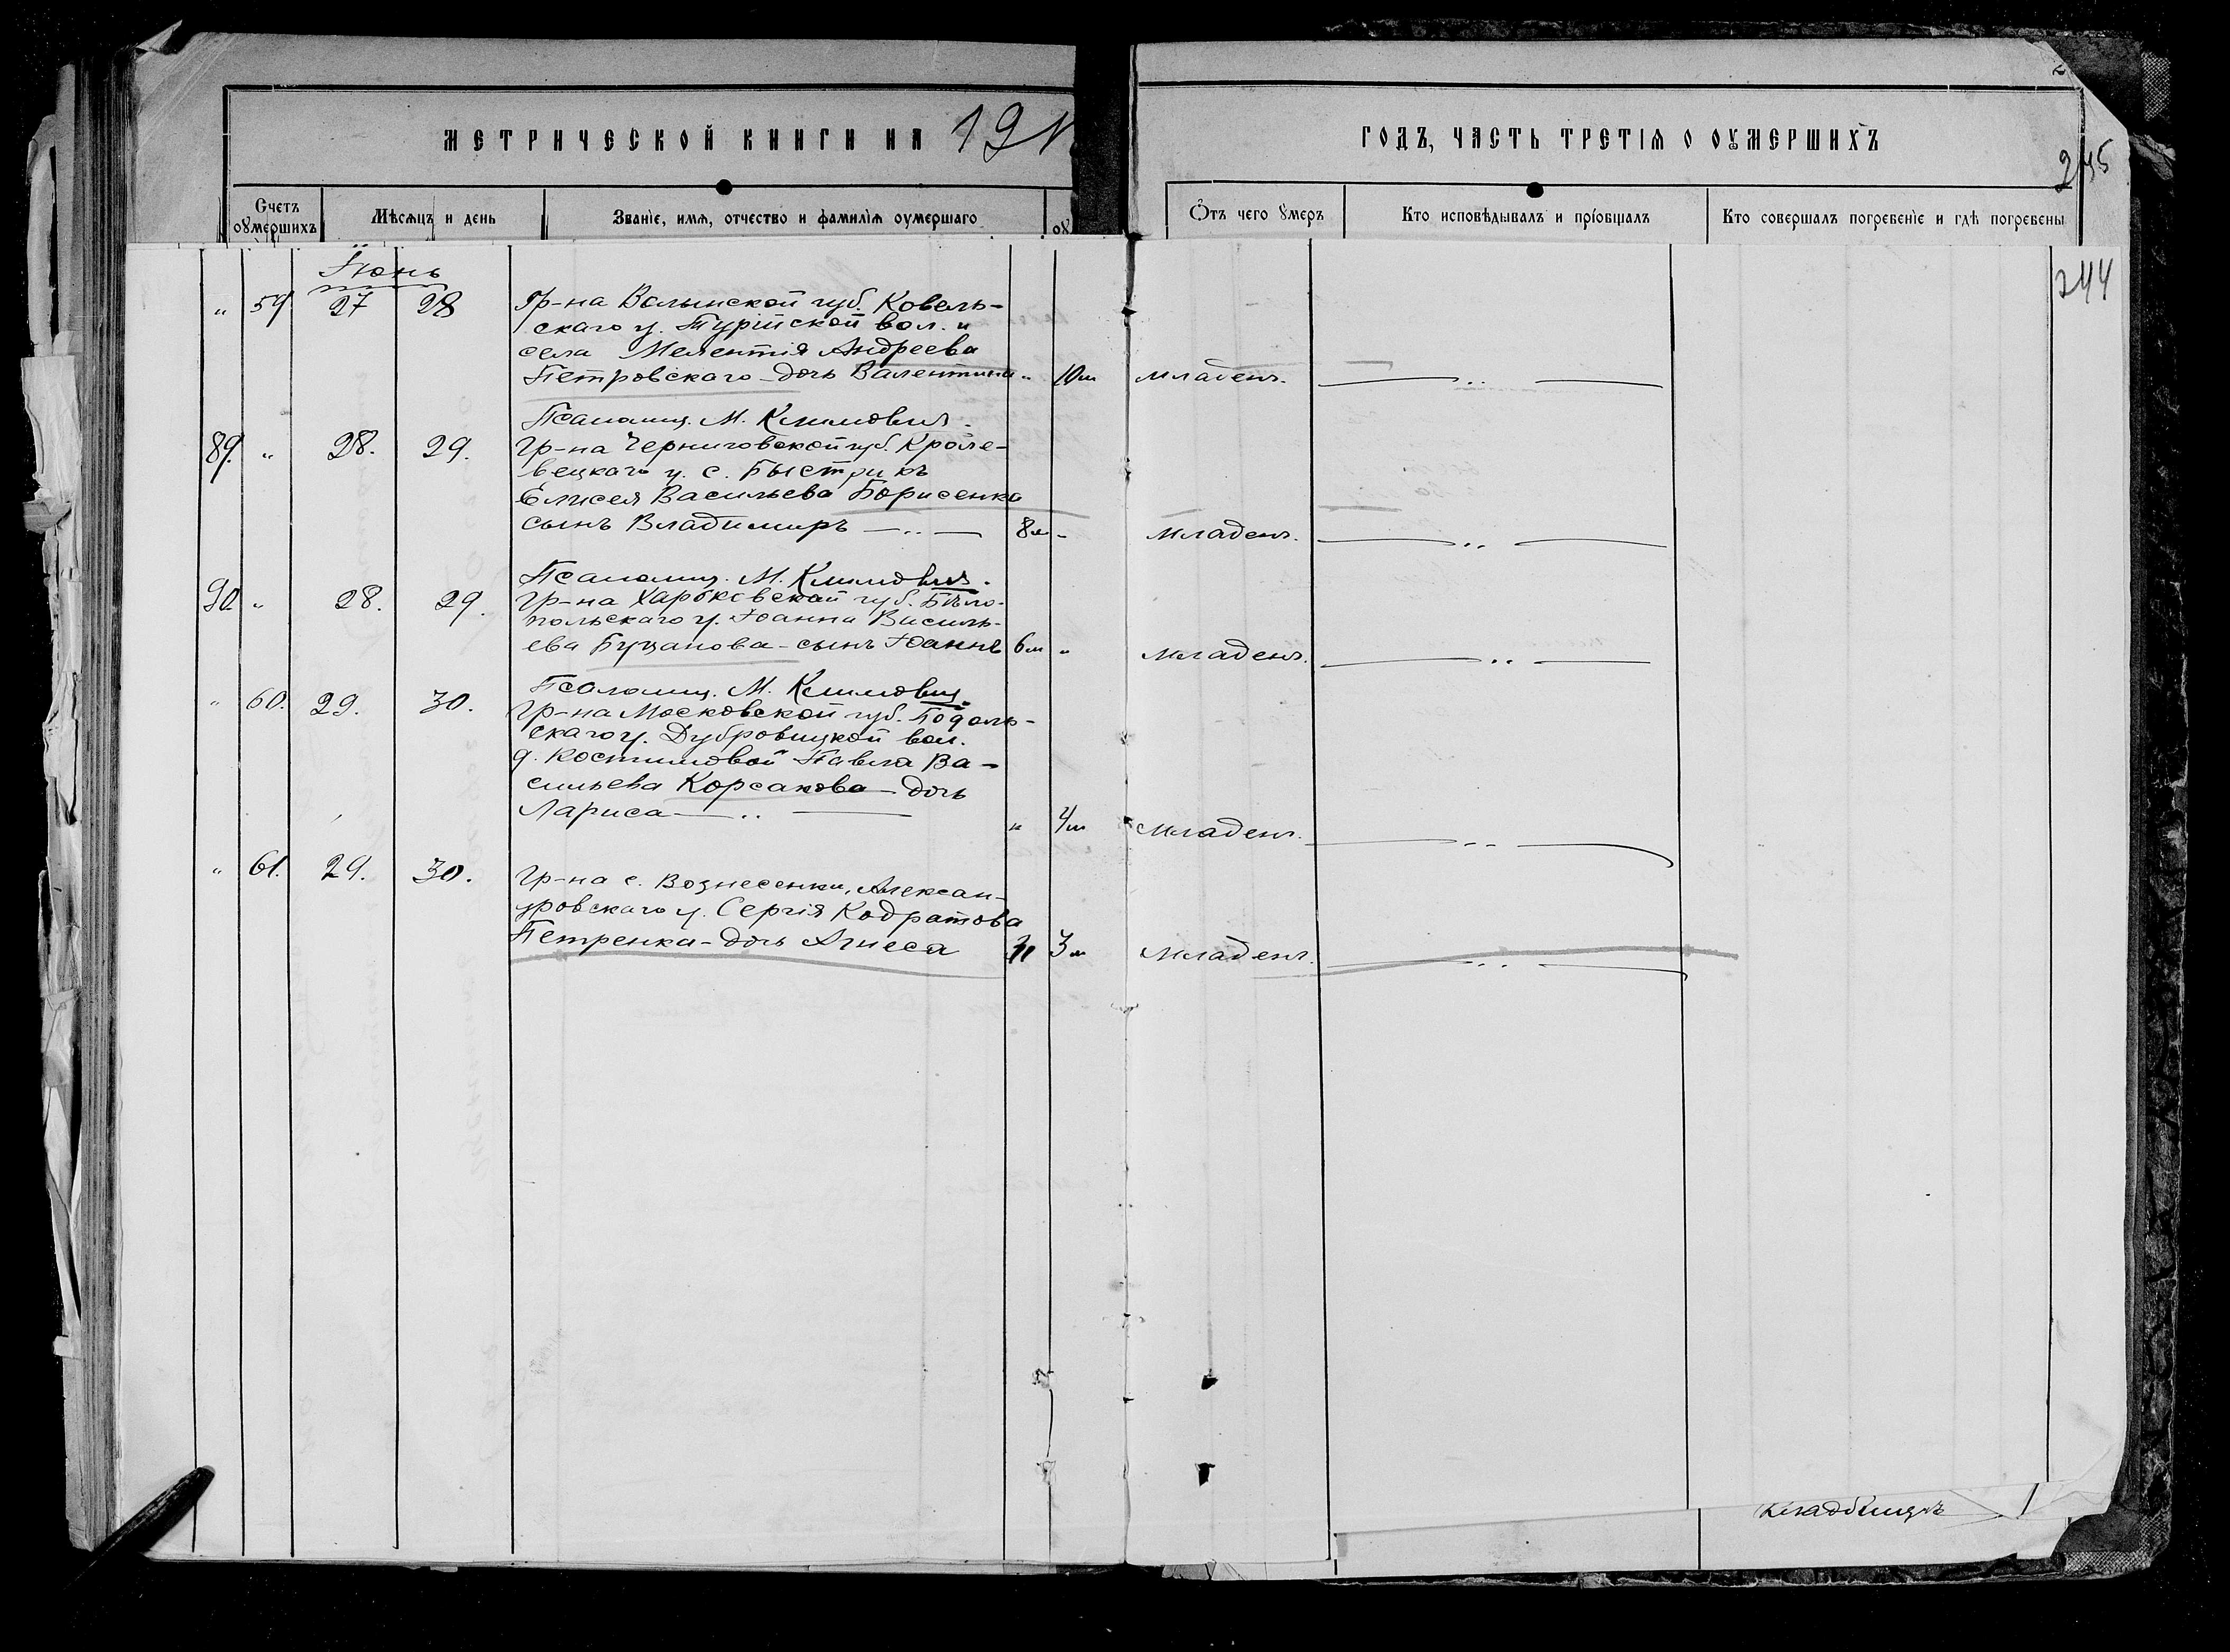 МЕТРИЧЕСКОЙ КНИГИ НА 191
ГОДЪ, ЧАСТЬ ТРЕТІѦ О ОУМЕРШИХЪ
245
Счетъ оумершихъ
Мѣсяцъ и день
Званіе, имя, отчество и фамилія оумершаго
Отъ чего умеръ
Кто исповѣдывалъ и пріобщалъ
Кто совершалъ погребеніе и гдѣ погребены
244
Іюнь
" 59 27 28 Гр-на Волынской губ. Ковель-
скаго у. Турійской вол. и
села Мелентія Андреева
Петровскаго - дочь Валентина " 10м младенч. — " —
Псаломщ. М. Климович.
89. " 28. 29. Гр-на Черниговской губ. Кроле-
вецкаго у. с. Быстрикъ
Елисея Васильева Борисенка
сынъ Владимиръ — " — 8м - младенч. — " —
Псаломщ. М. Климович.
90 " 28. 29. Гр-на Харьковской губ. Бѣло-
польскаго у. Іоанна Василь-
ева Буцанова - сынъ Іоаннъ 6м " младенч. — " —
Псаломщ. М. Климович.
" 60. 29. 30. Гр-на Московской губ. Подоль-
скаго у. Дубровицкой вол.
д. Костимовой Павла Ва-
сильева Корсакова - дочь
Лариса — " — " 4м младенч. — " —
" 61. 29. 30. Гр-на с. Вознесенки, Алексан-
дровскаго у. Сергія Кодратова
Петренка - дочь Агнеса 3м младенч. — " —
кладбищѣ